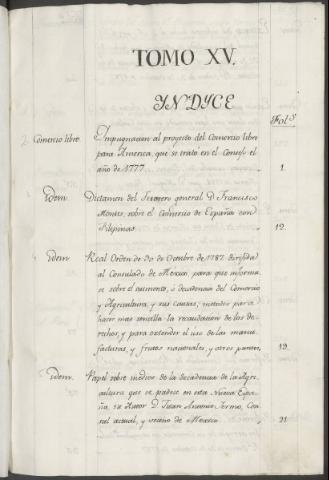 TOMO XV.
YNDYCE
Fol.s
Comercio libre. Ympugnacion al proyecto del Comercio libre
para America, que se trató en el Consejo el
año de 1777. 1.
Ydem Dictamen del Tesorero general D. Francisco
Montes, sobre el Comercio de España con
Filipinas. 12.
Ydem Real Orden de 30 de Octubre de 1787. dirigida
al Consulado de Mexico, para que informa
se sobre el aumento, ó decadencia del Comercio
y Agricultura, y sus causas, metodos para
hacer mas sencilla la recaudacion de los de-
rechos, y para extender el uso de las manu-
facturas, y frutos nacionales, y otros puntos. 19.
Ydem. Papel sobre indicios de la decadencia de la Agri-
cultura que se padece en esta Nueva Espa-
ña, su Autor D. Juan Antonio Yermo, Con-
sul actual, y vecino de Mexico 21